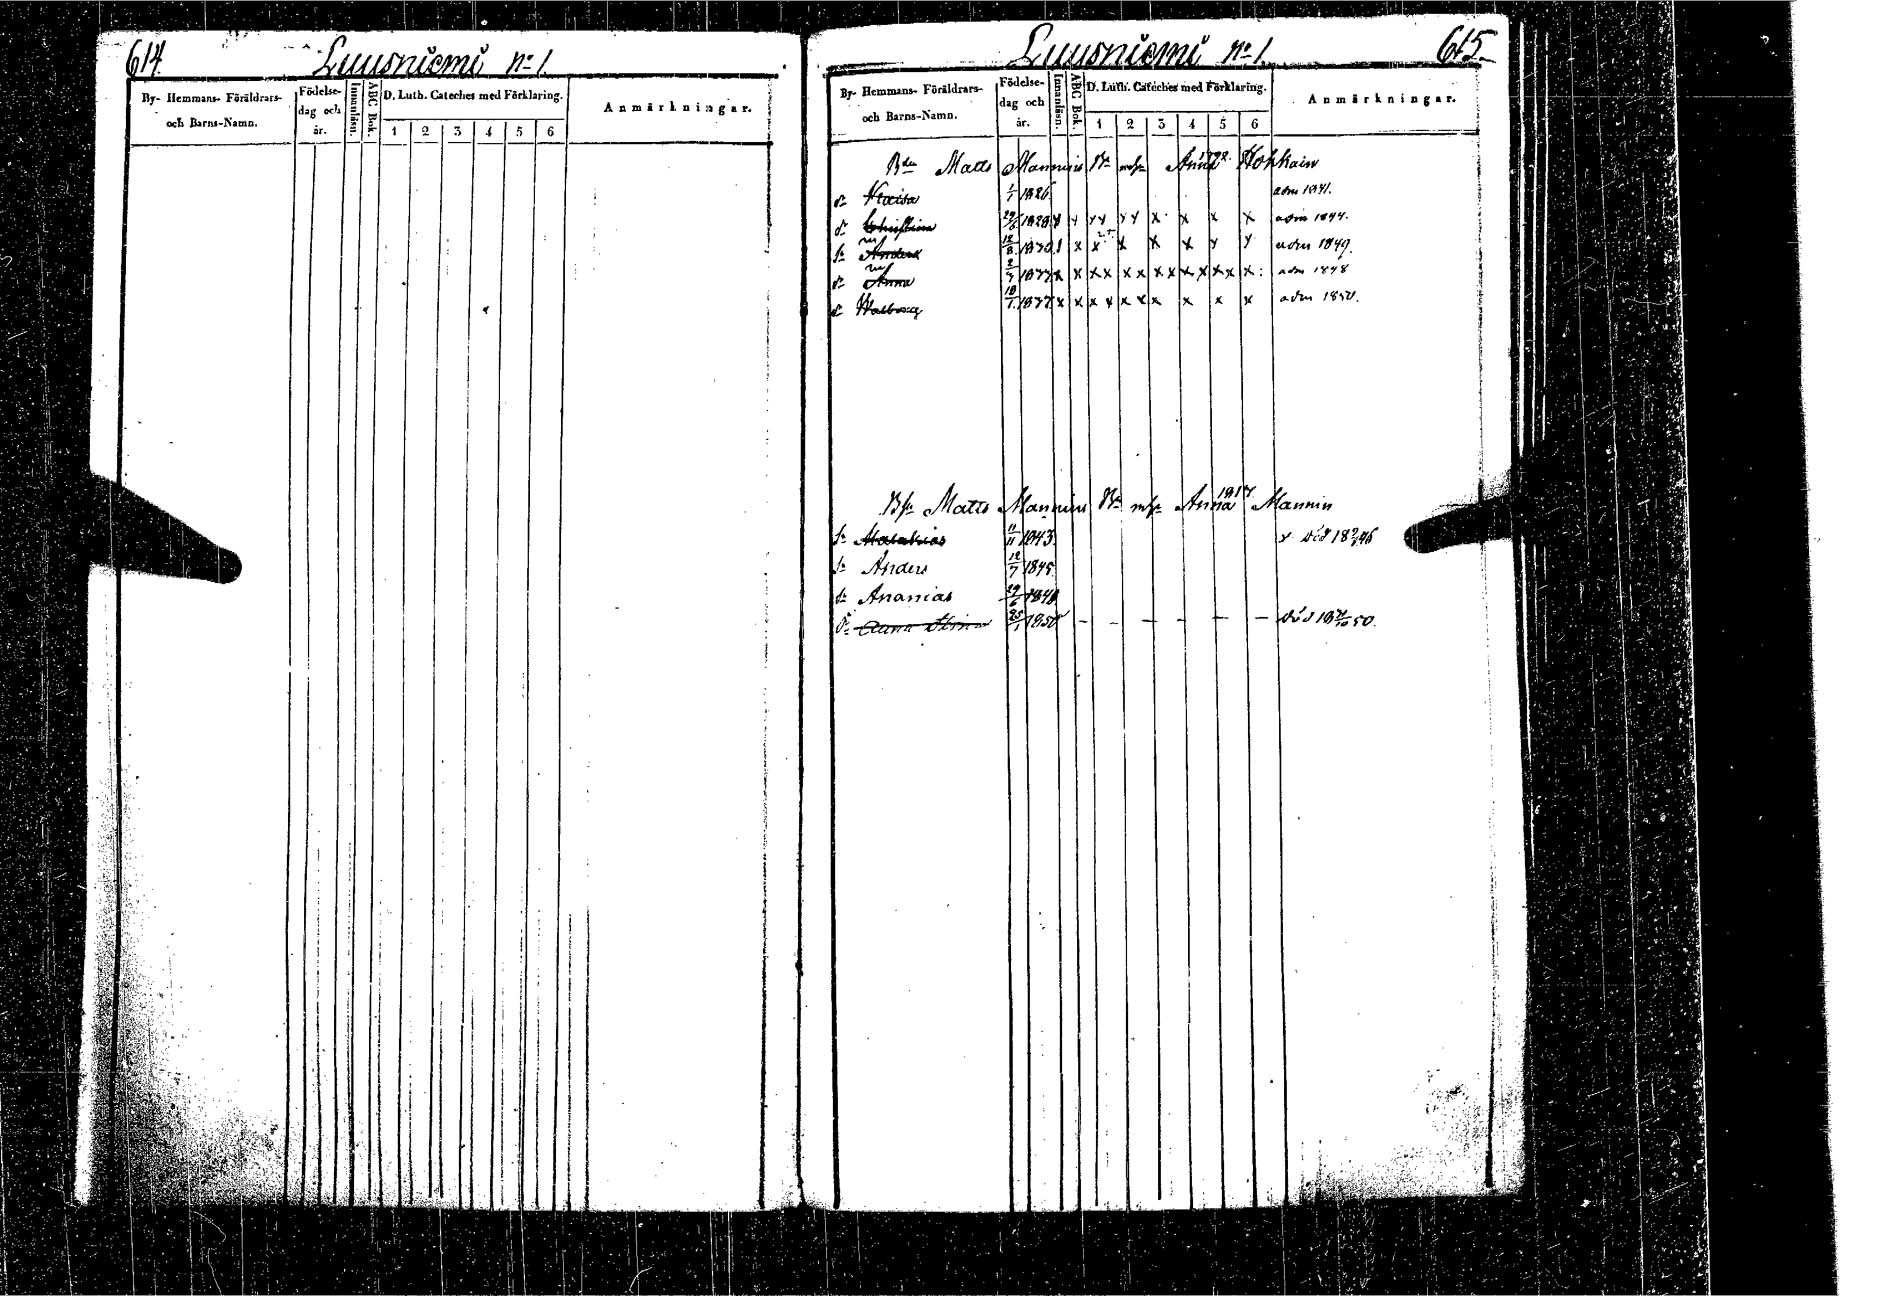 614.
Luusniemi no 1.
By- Hemmans- Föräldrars- och Barns-Namn.
Födelse- dag och år.
Innanläsn.
ABC Bok.
D. Luth. Cateches med Förklaring.
1 2 3 4 5 6
Anmärkningar.
Luusniemi no 1.
615.
By- Hemmans- Föräldrars- och Barns-Namn.
Födelse- dag och år.
Innanläsn.
ABC Bok.
D. Luth. Cateches med Förklaring.
1 2 3 4 5 6
Anmärkningar.
Bden Matts Manninen Anna Hokkain
dr 1/1 1826 adm 1841.
dr Christina 1828 x x x x x x adm 1844.
sn Anders x x x x adm 1849.
dr Anna x x x x x x x x x x x x adm 1848
dr Walborg x x x x x x x x x x adm 1850.
Matts Manninen Anna 1817 Mannin
sn Malakias 11/11 1843. död
sn Anders 12/7 1845
sn Ananias 29/6
dr Anna Stina 1850 - - - - - - död